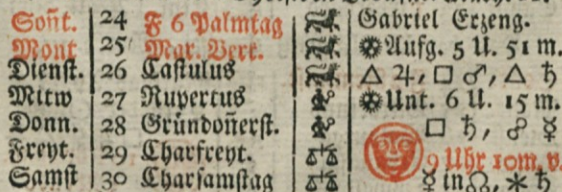 Soñt. 24 F 6 Palmtag Gabriel Erzeng.
Mont 25 Mar. Verk. Aufg. 5 U. 51 m.
Dienst. 26 Castulus △ ♃, □ ♂, △ ♄
Mitw 27 Rupertus Unt. 6 U. 15 m.
Donn. 28 Gründoñerst. □ ♄, ☍ ☿
Freyt. 29 Charfreyt. 9 Uhr 10m. v.
Samst 30 Charsamstag ☿ in ☊, ⚹ ♄